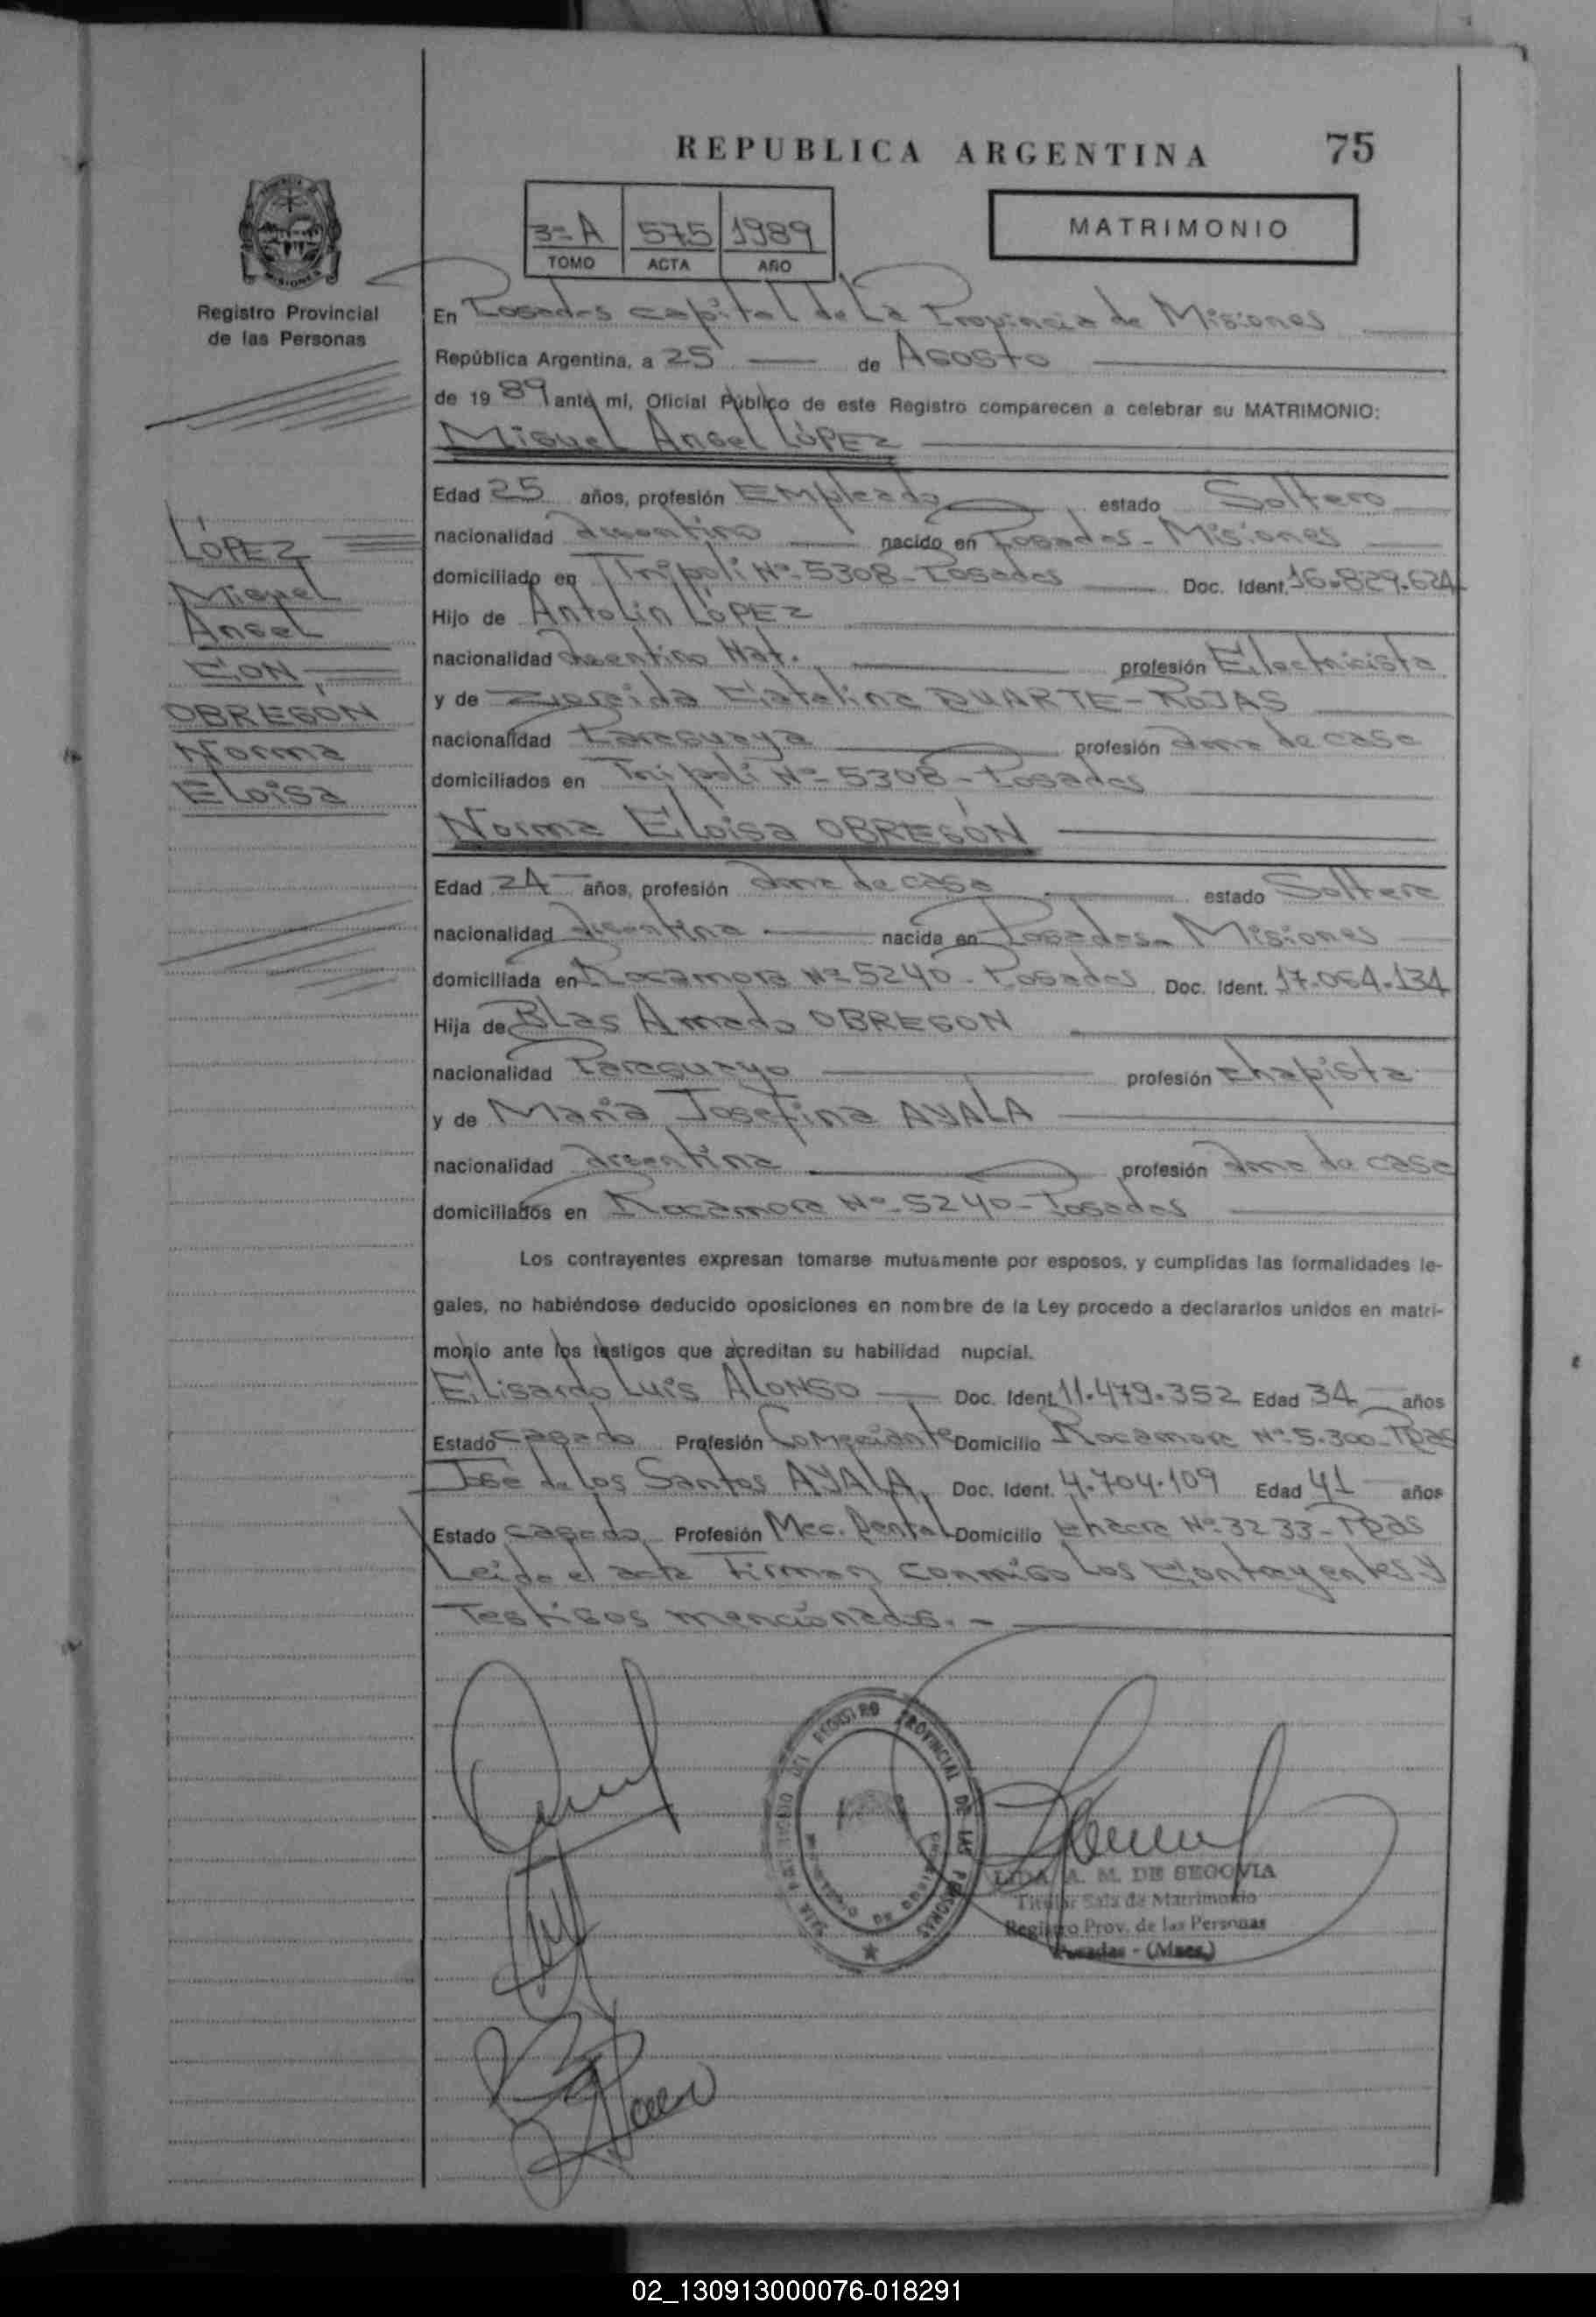 REPUBLICA ARGENTINA 75
3ª A 575 1989
TOMO ACTA AÑO
MATRIMONIO
Registro Provincial
de las Personas
En Posadas capital de La Provincia de Misiones
República Argentina, a 25 de Agosto
de 1989 ante mí, Oficial Público de este Registro comparecen a celebrar su MATRIMONIO:
Miguel Angel LÓPEZ
Edad 25 años, profesión Empleado estado Soltero
nacionalidad Argentino nacido en Posadas - Misiones
domiciliado en Tripoli Nº 5308 - Posadas Doc. Ident. 16.829.624
Hijo de Antolín LÓPEZ
nacionalidad Argentino Nat. profesión Electricista
y de Catalina DUARTE - ROJAS
nacionalidad Paraguaya profesión Ama de casa
domiciliados en Tripoli Nº 5308 - Posadas
Norma Eloisa OBREGÓN
Edad 24 años, profesión Ama de casa estado Soltera
nacionalidad Argentina nacida en Posadas - Misiones
domiciliada en Rocamora Nº 5240 - Posadas Doc. Ident. 17.064.134
Hija de Blas Amado OBREGON
nacionalidad Paraguayo profesión Chapista
y de María Josefina AYALA
nacionalidad Argentina profesión Ama de casa
domiciliados en Rocamora Nº 5240 - Posadas
LÓPEZ
Miguel
Angel
CON
OBREGÓN
Norma
Eloisa
Los contrayentes expresan tomarse mutuamente por esposos, y cumplidas las formalidades le-
gales, no habiéndose deducido oposiciones en nombre de la Ley procedo a declararlos unidos en matri-
monio ante los testigos que acreditan su habilidad nupcial.
Elisardo Luis ALONSO Doc. Ident. 11.479.352 Edad 34 años
Estado Casado Profesión Comerciante Domicilio Rocamora Nº 5.300 - Pdas
José de los Santos AYALA, Doc. Ident. 4.704.109 Edad 41 años
Estado Casado Profesión Mec. Dental Domicilio Chacra Nº 32 33 - Pdas
Leída el acta Firman conmigo los Contrayentes y
Testigos mencionados. -
DEL REGISTRO PROVINCIAL DE LAS PERSONAS
LIDA A. M. DE SEGOVIA
Titular Sala de Matrimonio
Registro Prov. de las Personas
Posadas - (Mnes.)
02_130913000076-018291